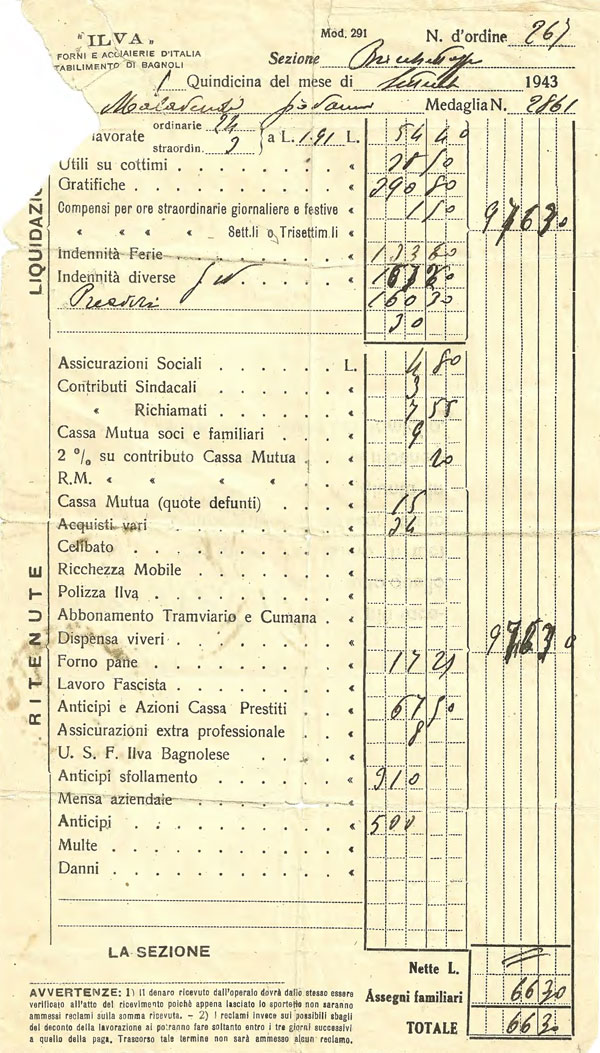 "ILVA„
FORNI E ACCIAIERIE D'ITALIA
TABILIMENTO DI BAGNOLI
Mod. 291
N. d'ordine 267
Sezione
1 Quindicina del mese di 1943
Medaglia N. 2861
LIQUIDAZIO
lavorate ordinarie 24 a L. 1.91 L. 54 40
straordin.
Utili su cottimi «
Gratifiche « 290 80
Compensi per ore straordinarie giornaliere e festive « 150
« « « « Sett.li o Trisettim.li
Indennità Ferie « 133 60
Indennità diverse «
160 20
30
RITENUTE
Assicurazioni Sociali L. 4 80
Contributi Sindacali « 3
« Richiamati « 7 55
Cassa Mutua soci e familiari « 9
2 % su contributo Cassa Mutua « 20
R.M. « « « « «
Cassa Mutua (quote defunti) « 15
Acquisti vari « 24
Celibato «
Ricchezza Mobile «
Polizza Ilva «
Abbonamento Tramviario e Cumana «
Dispensa viveri «
Forno pane « 17 25
Lavoro Fascista «
Anticipi e Azioni Cassa Prestiti « 67 50
Assicurazioni extra professionale « 8
U. S. F. Ilva Bagnolese «
Anticipi sfollamento « 310
Mensa aziendale «
Anticipi « 500
Multe «
Danni «
LA SEZIONE
Nette L.
Assegni familiari 66 30
TOTALE 66 30
AVVERTENZE: 1) Il denaro ricevuto dall'operaio dovrà dallo stesso essere
verificato all'atto del ricevimento poichè appena lasciato lo sportello non saranno
ammessi reclami sulla somma ricevuta. – 2) I reclami invece sui possibili sbagli
del deconto della lavorazione ai potranno fare soltanto entro i tre giorni successivi
a quello della paga. Trascorso tale termine non sarà ammesso alcun reclamo.